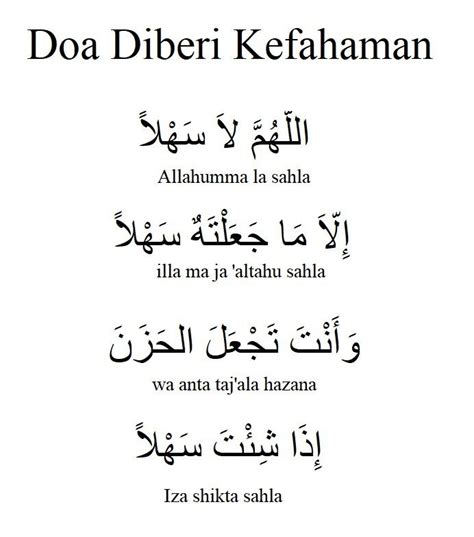 Doa Diberi Kefahaman
اللّهُمَّ لاَ سَهْلاً
Allahumma la sahla
إِلّاَ مَا جَعَلْتَهٌ سَهْلاً
illa ma ja 'altahu sahla
وَأَنْتَ تَجْعَلَ الحَزَنَ
wa anta taj'ala hazana
إِذَا شِئْتَ سَهْلاً
Iza shikta sahla